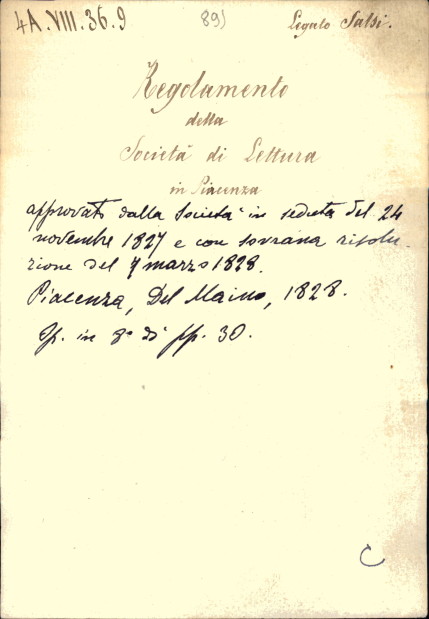 4A.VIII.36.9 891 Legato Salsi.
Regolamento
della
Società di Lettura
in Piacenza
approvato dalla Società in seduta del 24
novembre 1827 e con sovrana risolu-
zione del 7 marzo 1828.
Piacenza, Del Maino, 1828.
Op. in 8° di pp. 30.
C